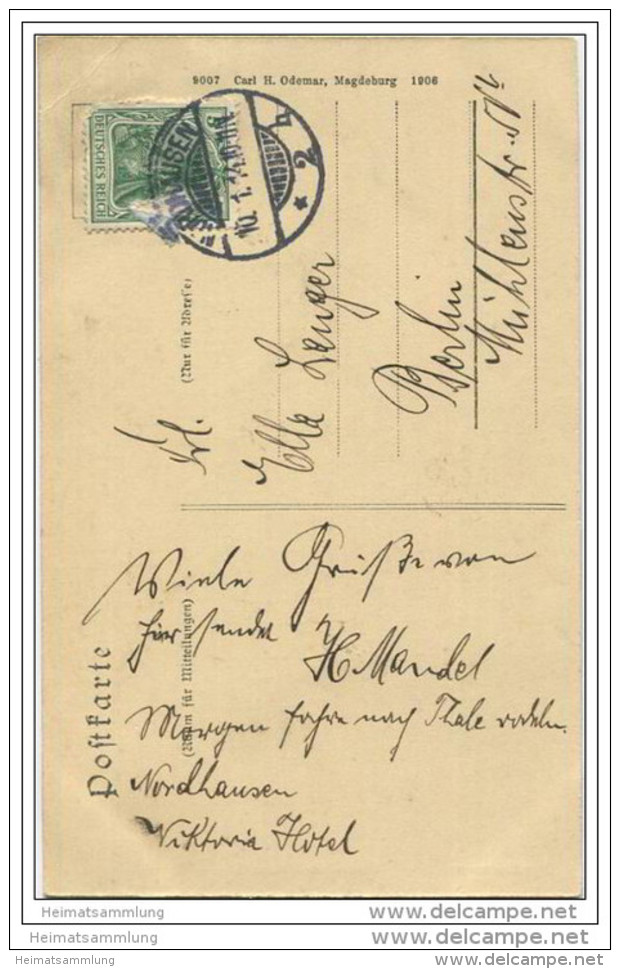 9007 Carl H. Odemar, Magdeburg 1906
DEUTSCHES REICH
5
NORDHAUSEN
10. 1.
* 2 h
(Nur für Adresse)
Frl.
Ella Zenger
Berlin
Mühlenstr.
Postkarte
(Raum für Mitteilungen)
Viele Grüße von
hier sendet
H Mandel
Morgen fahre nach Thale rodeln.
Nordhausen
Viktoria Hotel
Heimatsammlung
www.delcampe.net
Heimatsammlung
www.delcampe.net
Heimatsammlung
www.delcampe.net